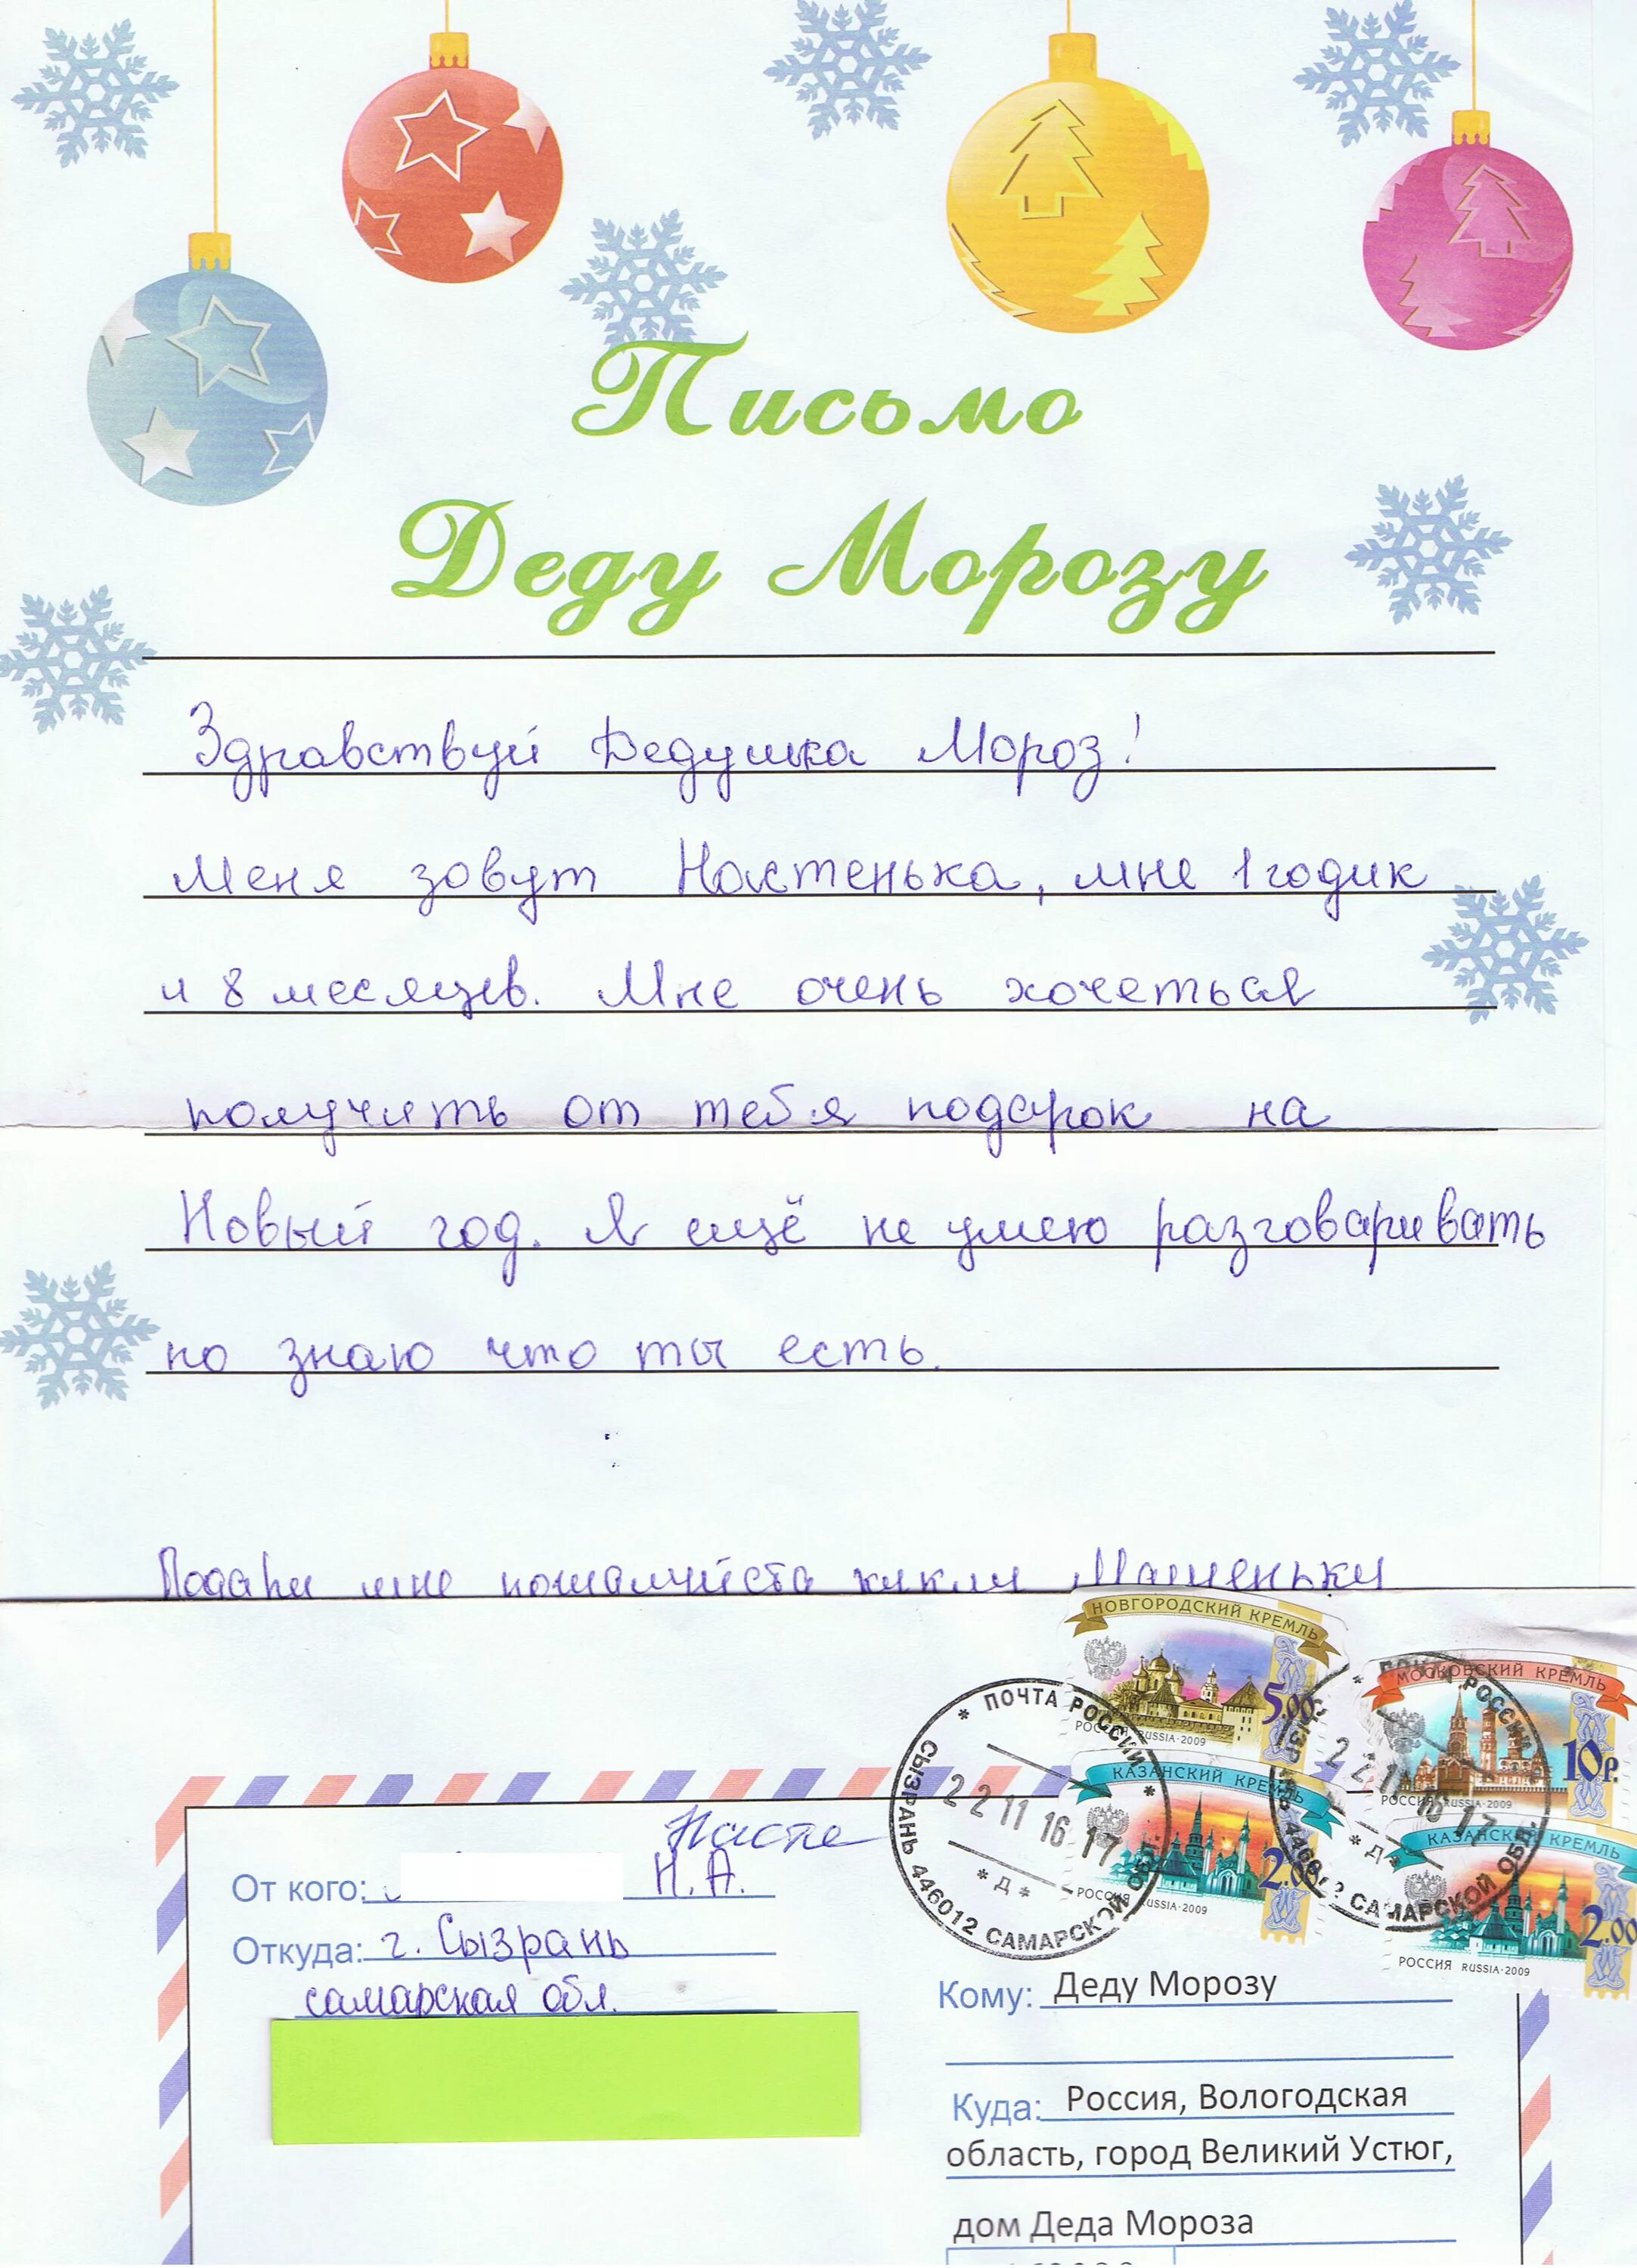 Письмо
Деду Морозу
Здравствуй Дедушка Мороз!
Меня зовут Настенька, мне 1 годик
и 8 месяцев. Мне очень хочеться
получить от тебя подарок на
Новый год. Я ещё не умею разговаривать
но знаю что ты есть.
Подари мне пожалуйста куклу Машеньку
НОВГОРОДСКИЙ КРЕМЛЬ
5.00
РОССИЯ RUSSIA·2009
МОСКОВСКИЙ КРЕМЛЬ
10р.
РОССИЯ RUSSIA·2009
КАЗАНСКИЙ КРЕМЛЬ
2.00
РОССИЯ RUSSIA·2009
КАЗАНСКИЙ КРЕМЛЬ
2.00
РОССИЯ RUSSIA·2009
* ПОЧТА РОССИИ *
22 11 16 17
* Д *
СЫЗРАНЬ 446012 САМАРСКОЙ ОБЛ.
ПОЧТА РОССИИ
22 1 16 17
* Д *
446012 САМАРСКОЙ ОБЛ.
Насте
От кого: Н.А.
Откуда: г. Сызрань
самарская обл.
Кому: Деду Морозу
Куда: Россия, Вологодская
область, город Великий Устюг,
дом Деда Мороза